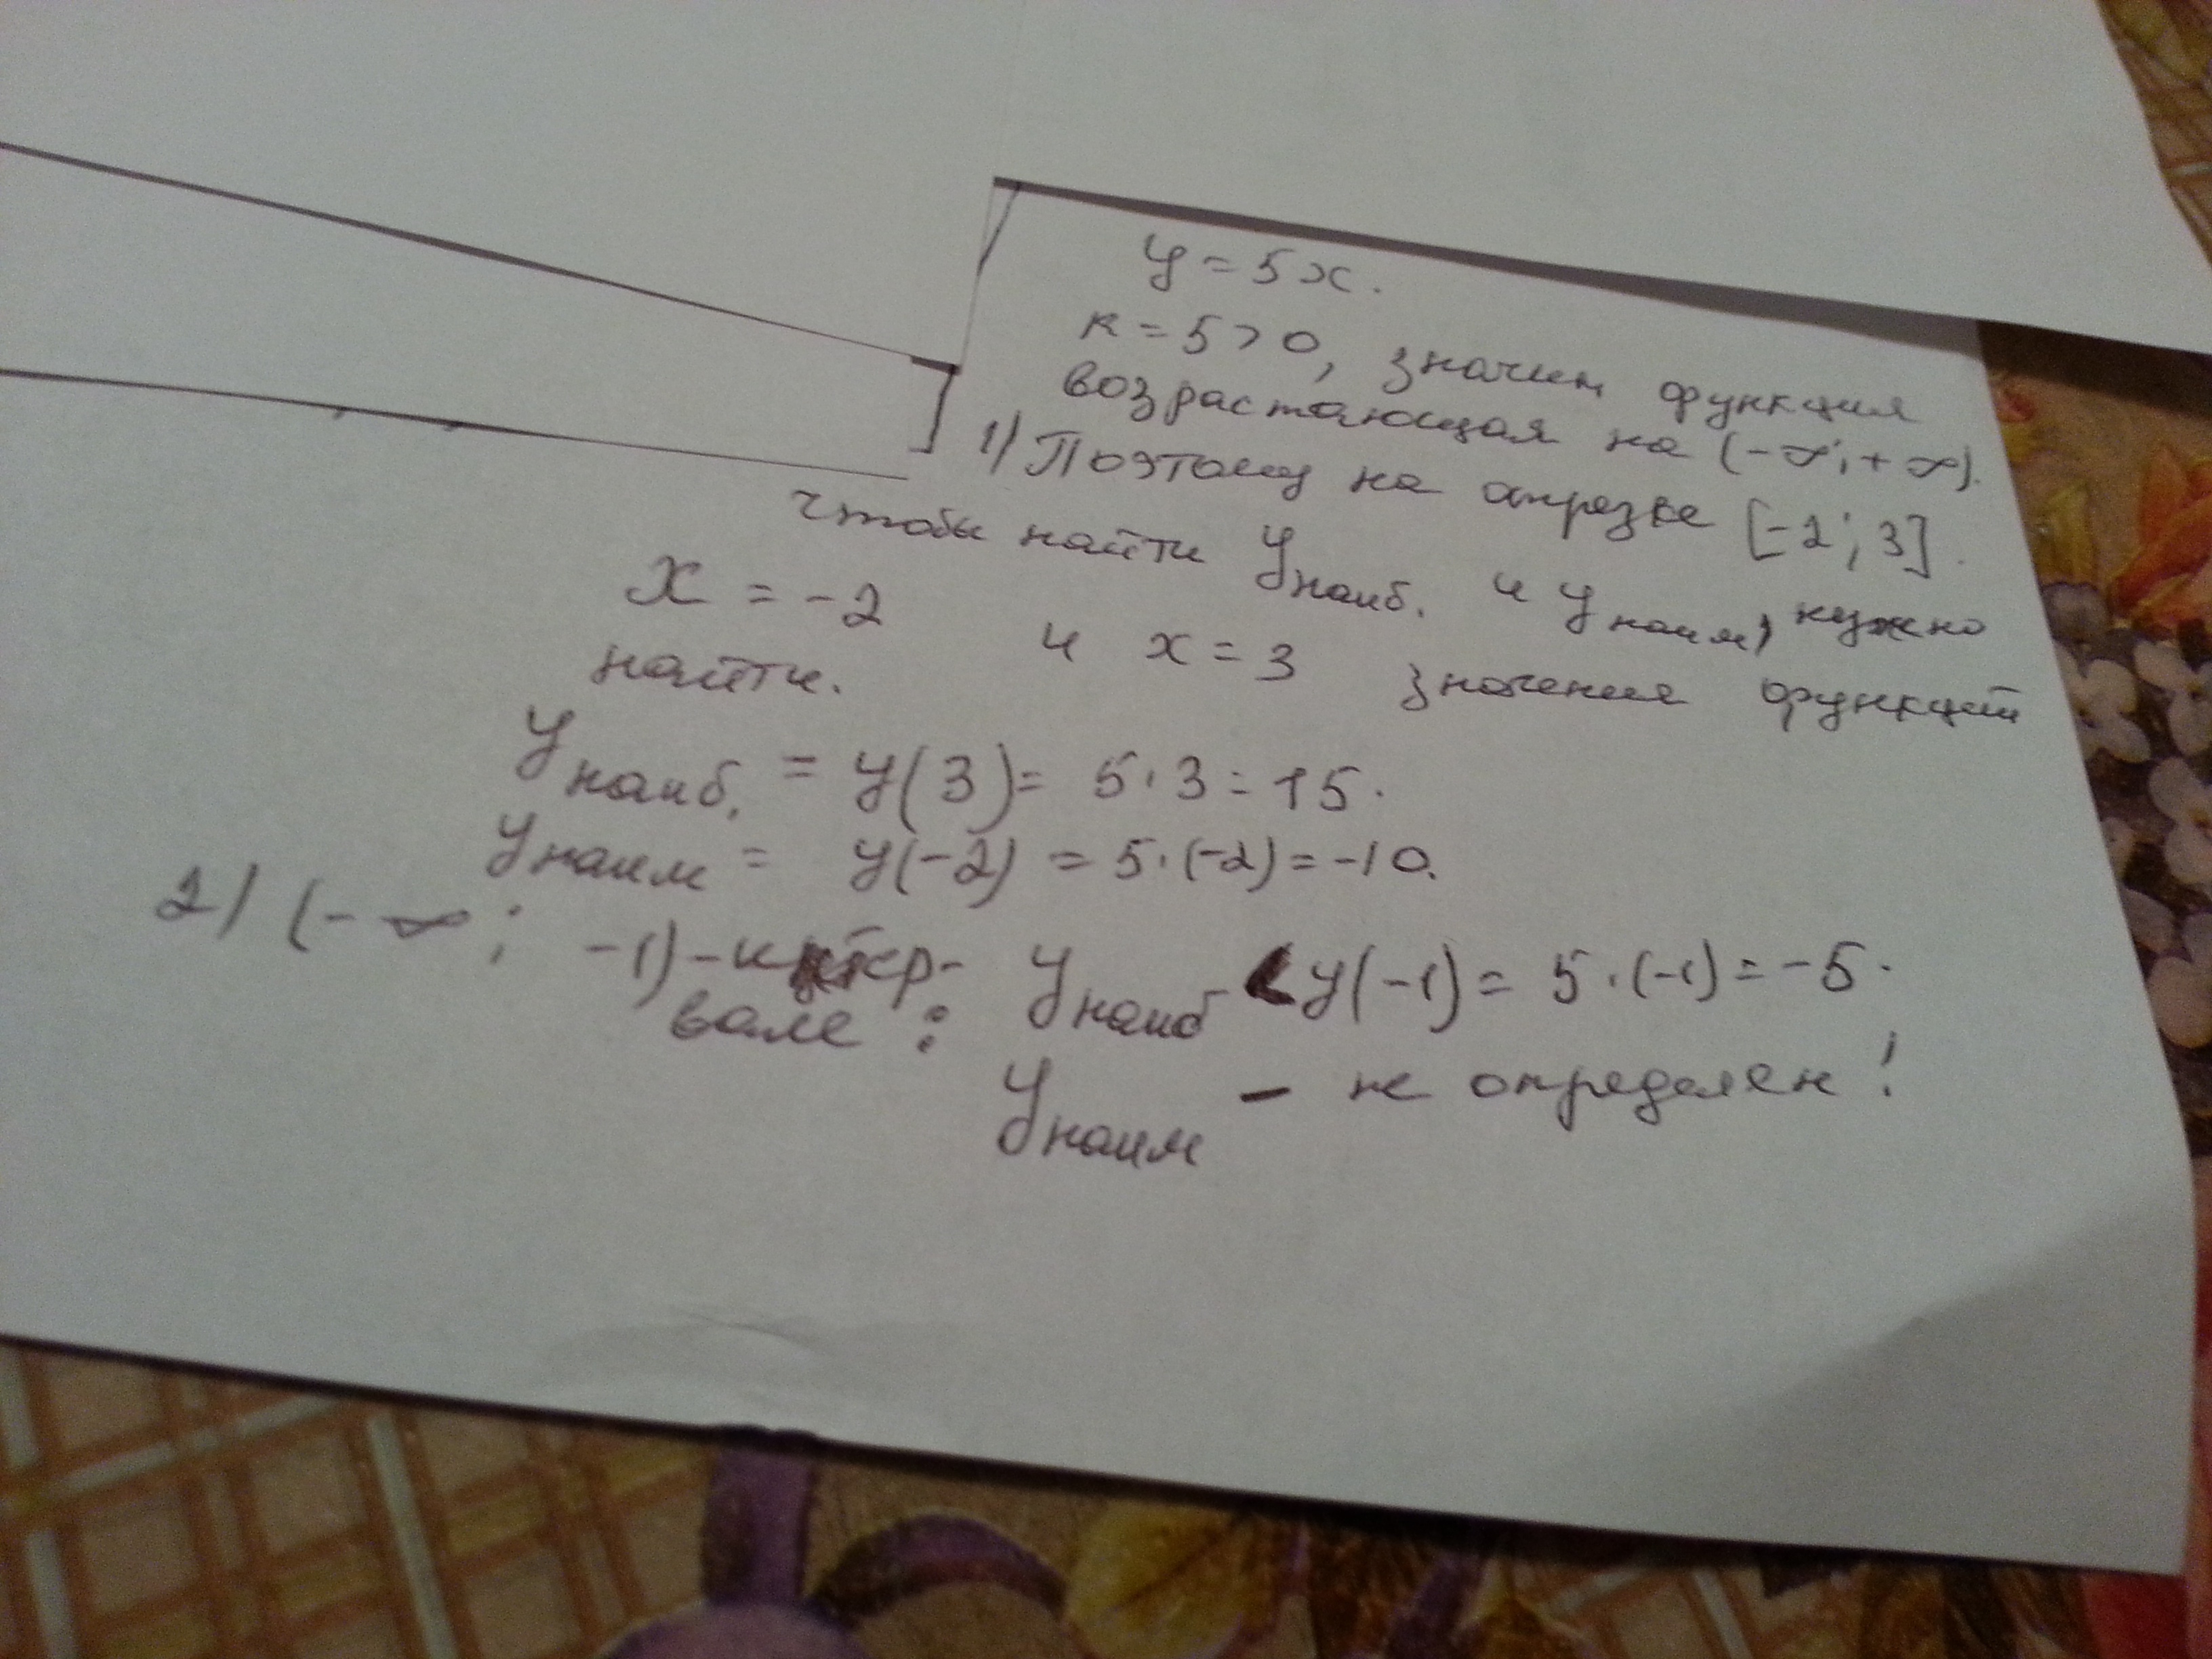 y = 5x.
k = 5 > 0, значит функция
возрастающая на (-∞; +∞).
1) Поэтому на отрезке [-2; 3].
чтобы найти y наиб. и y наим, нужно
x = -2 и x = 3 значения функций
найти.
y наиб. = y(3) = 5·3 = 15.
y наим = y(-2) = 5·(-2) = -10.
2) (-∞; -1) - интер- y наиб < y(-1) = 5·(-1) = -5.
вале :
y наим - не определен!